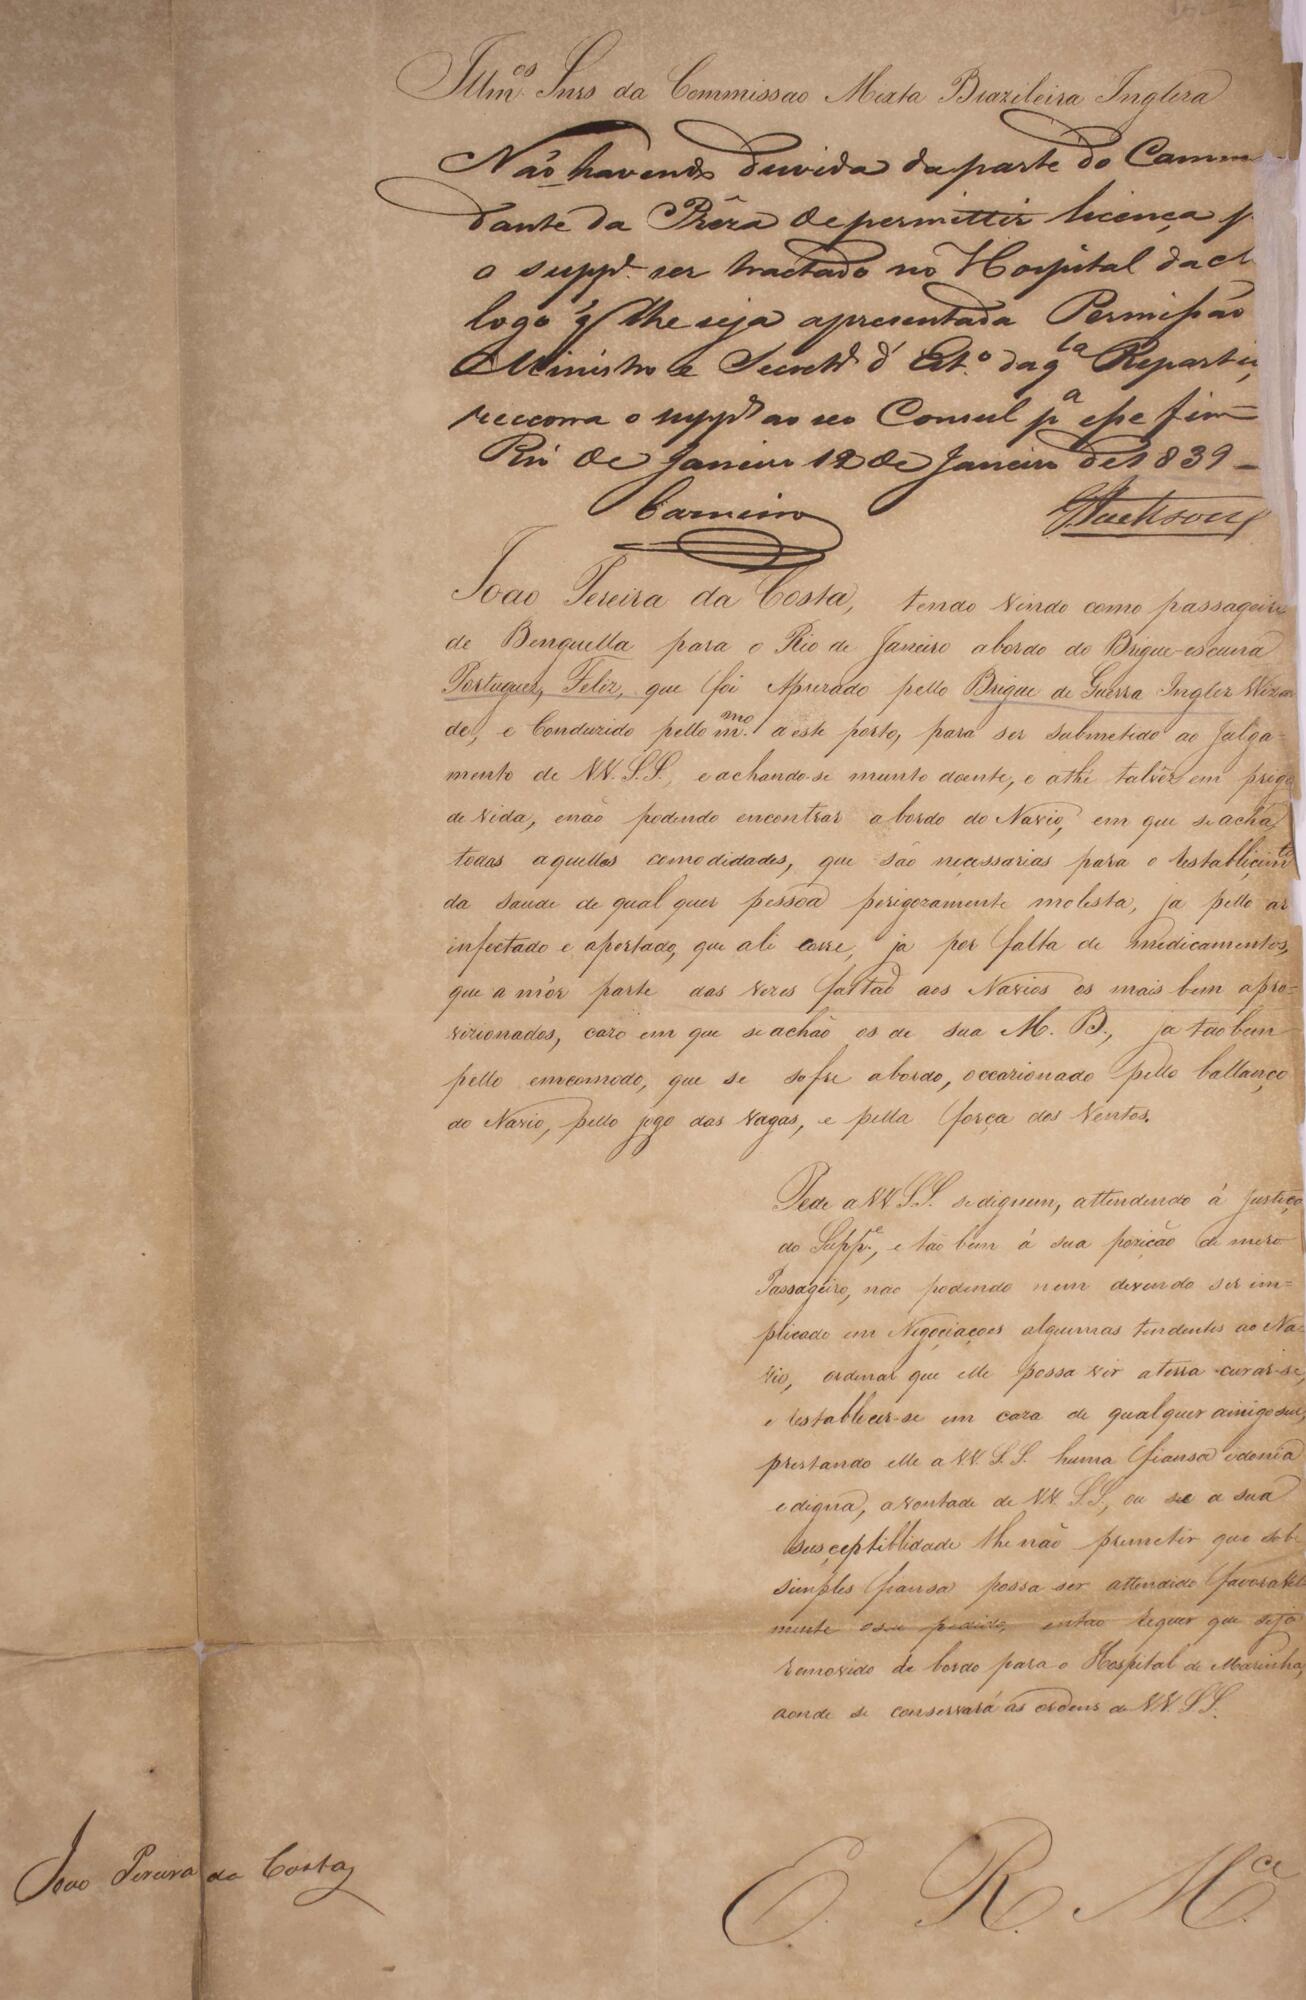 Illmos. Snrs da Commissao Mixta Brazileira Ingleza
Não havendo duvida da parte do Comm
dante da Prêza de permittir licença p
o suppe. ser tractado no Hospital da
logo q' lhe seja apresentada Permissão
Ministro e Secretr. d' Est.o daqta Repartiç
recorra o suppe ao seo Consul pa esse fim
Rio de Janeiro 12 de Janeiro de 1839 -
Carneiro Jackson
Joao Pereira da Costa, tendo vindo como passageiro
de Benguella para o Rio de Janeiro abordo do Brigue-escuna
Portuguez, Feliz, que foi Aprezado pello Brigue de Guerra Inglez Wizar
de, e Conduzido pello mmo. a este porto, para ser submetido ao Julga-
mento de VV. S.S., e achando-se munto doente, e athe talvêz em prigo
de vida, enão podendo encontrar abordo do Navio, em que se acha,
todas aquellas comodidades, que são neçessarias para o restabliçimto
da saude de qual quer pessoa perigozamente molesta, ja pello ar
infectado e apertado, que ali corre, ja por falta de medicamentos,
que a môr parte das vezes faltaõ aos Navios os mais bem apro-
vizionados, cazo em que se achão os de sua M. B., ja tão bem
pello emcomodo, que se sofre abordo, occazionado pello ballanço
do Navio, pello jogo das vagas, e pella força dos Ventos.
Pede a VV S.S. se dignem, attendendo á justiça
do Suppe., e tão bem á sua pozição de mero
Passageiro, nao podendo nem devendo ser im=
plicado em Negoçiaçoes algumas tendentes ao Na-
vio, ordenar que elle possa vir a terra curar-se,
e restablecer-se em caza de qualquer amigo seu,
prestando elle a VV. S.S. huma fiansa idonia
e digna, a vontade de VV. S.S., ou se a sua
susçeptiblidade lhe não premetir que sobe
simples fiansa possa ser attendido favoravel
mente o seu pedido, entao requer que seja
removido de bordo para o Hospital de Marinha,
aonde se conservará as ordens de VV. S S.
E. R. Mce.
Joao Pereira da Costa